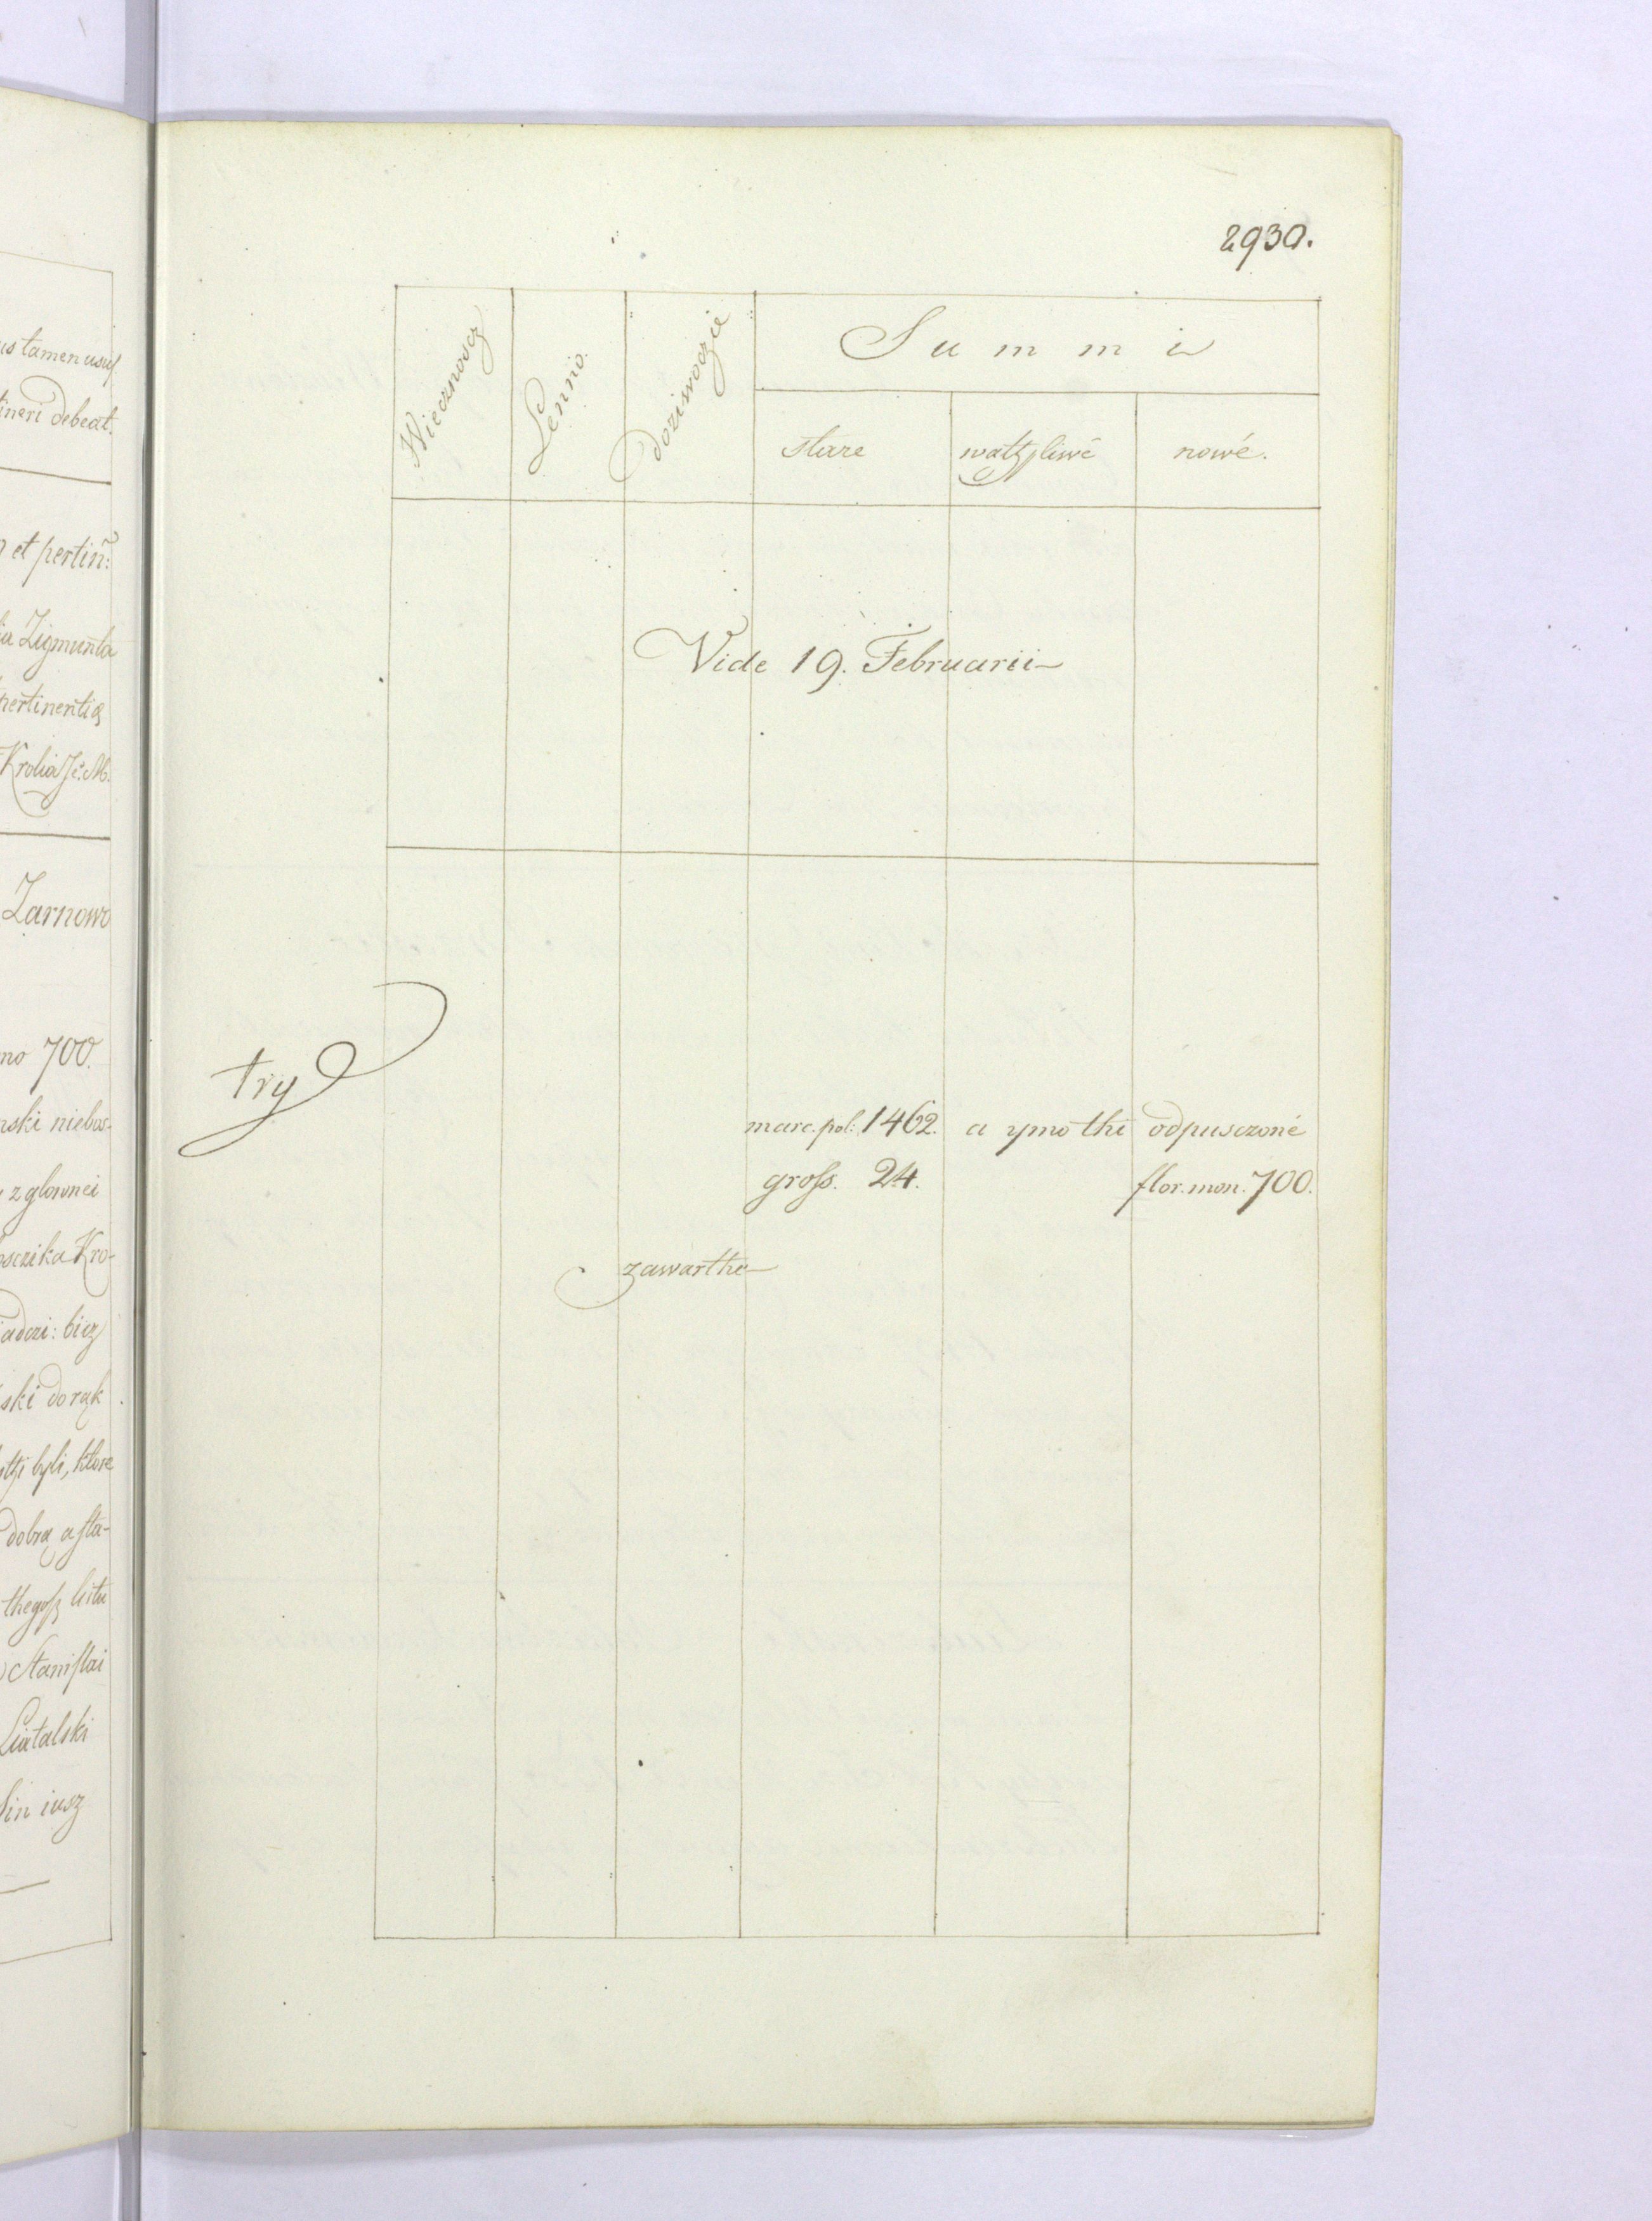 us tamen usuf
ineri debeat.
et pertin:
ia Zigmunta
pertinentia
Krolia Je. M.
Zarnowo
no 700.
nski niebos-
z glownei
bsczika Kro-
iadczi: biez
ski do rąk
byli, ktore
dobra, a sta-
thegosz listu
Stanislai
Liatalski
Sin iusz
2930.
Wiecznoscz
Lenno.
doziwoczie
Summi
stare
wątpliwé
nowé.
Vide 19. Februarii
try
marc. pol: 1462. a ymo thé odpusczoné
gross. 24. flor. mon. 700.
zawarthe